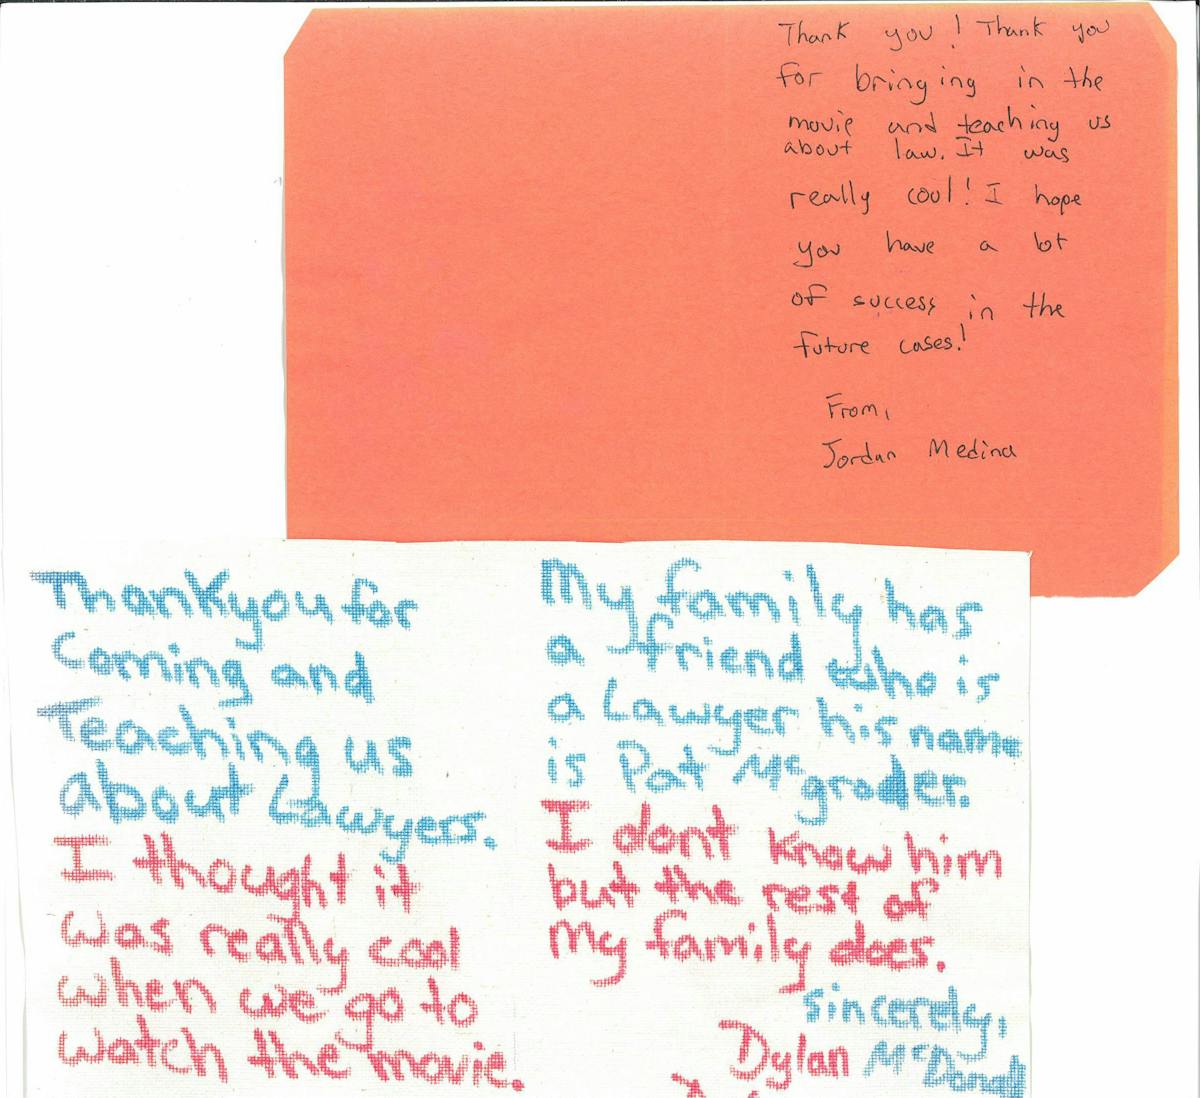 Thank you! Thank you
for bringing in the
movie and teaching us
about law. It was
really cool! I hope
you have a lot
of success in the
future cases!
From,
Jordan Medina
Thankyou for
Coming and
Teaching us
about Lawyers.
I thought it
was really cool
when we go to
watch the movie.
My family has
a friend who is
a Lawyer his name
is Pat McGroder.
I dont know him
but the rest of
my family does.
sincerely,
Dylan McDonall